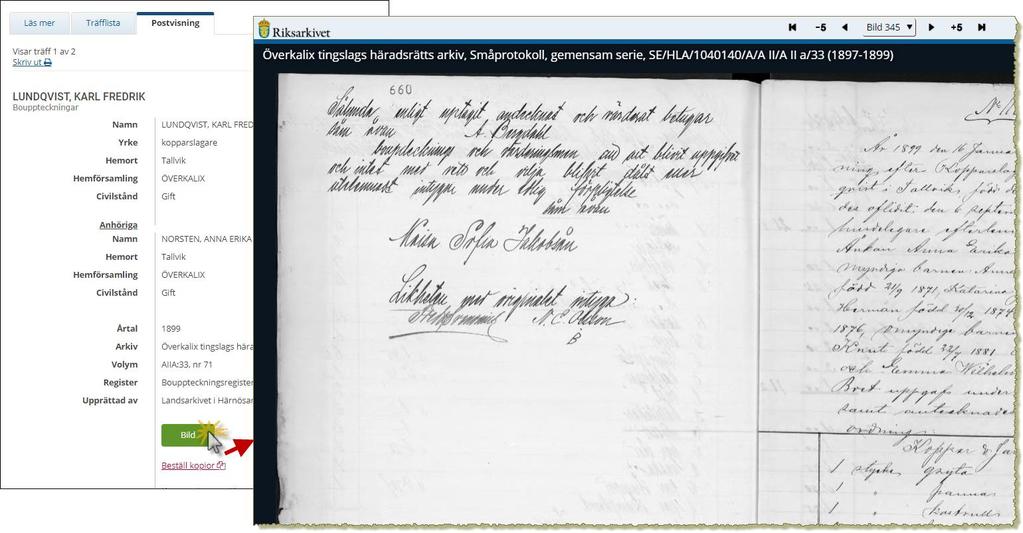 Läs mer
Träfflista
Postvisning
Visar träff 1 av 2
Skriv ut
LUNDQVIST, KARL FREDRIK
Bouppteckningar
Namn LUNDQVIST, KARL FRED
Yrke kopparslagare
Hemort Tallvik
Hemförsamling ÖVERKALIX
Civilstånd Gift
Anhöriga
Namn NORSTEN, ANNA ERIKA
Hemort Tallvik
Hemförsamling ÖVERKALIX
Civilstånd Gift
Årtal 1899
Arkiv Överkalix tingslags hära
Volym AIIA:33, nr 71
Register Bouppteckningsregister
Upprättad av Landsarkivet i Härnösan
Bild
Beställ kopior
Riksarkivet
-5
Bild 345
+5
Överkalix tingslags häradsrätts arkiv, Småprotokoll, gemensam serie, SE/HLA/1040140/A/A II/A II a/33 (1897-1899)
660
Sålunda enligt uptagit, antecknat och värderat betygar
som ovan
bouptekning och
och intet med veto och vilja blifvit dålt eller
intygar under Edlig förpligtelse
som ovan
Maija Sofia Jakobsån
Likheten med originalet intyga:
År 1899 den 16 Janua
ning efter Kopparslag
qvist i Tallvik, född d
des aflidit den 6 septem
Enkan Anna Erika
myndiga barnen Anna
född 21/9 1871, Katarina
Herman född 20/12 1874
1876, omyndige barne
Knut född 22/7 1881
och Emma Wilhelm
Bret uppgafs under
samt antecknades
ordning:
Koppar &
1 stycke gryta
1 " panna
1 " kastrull